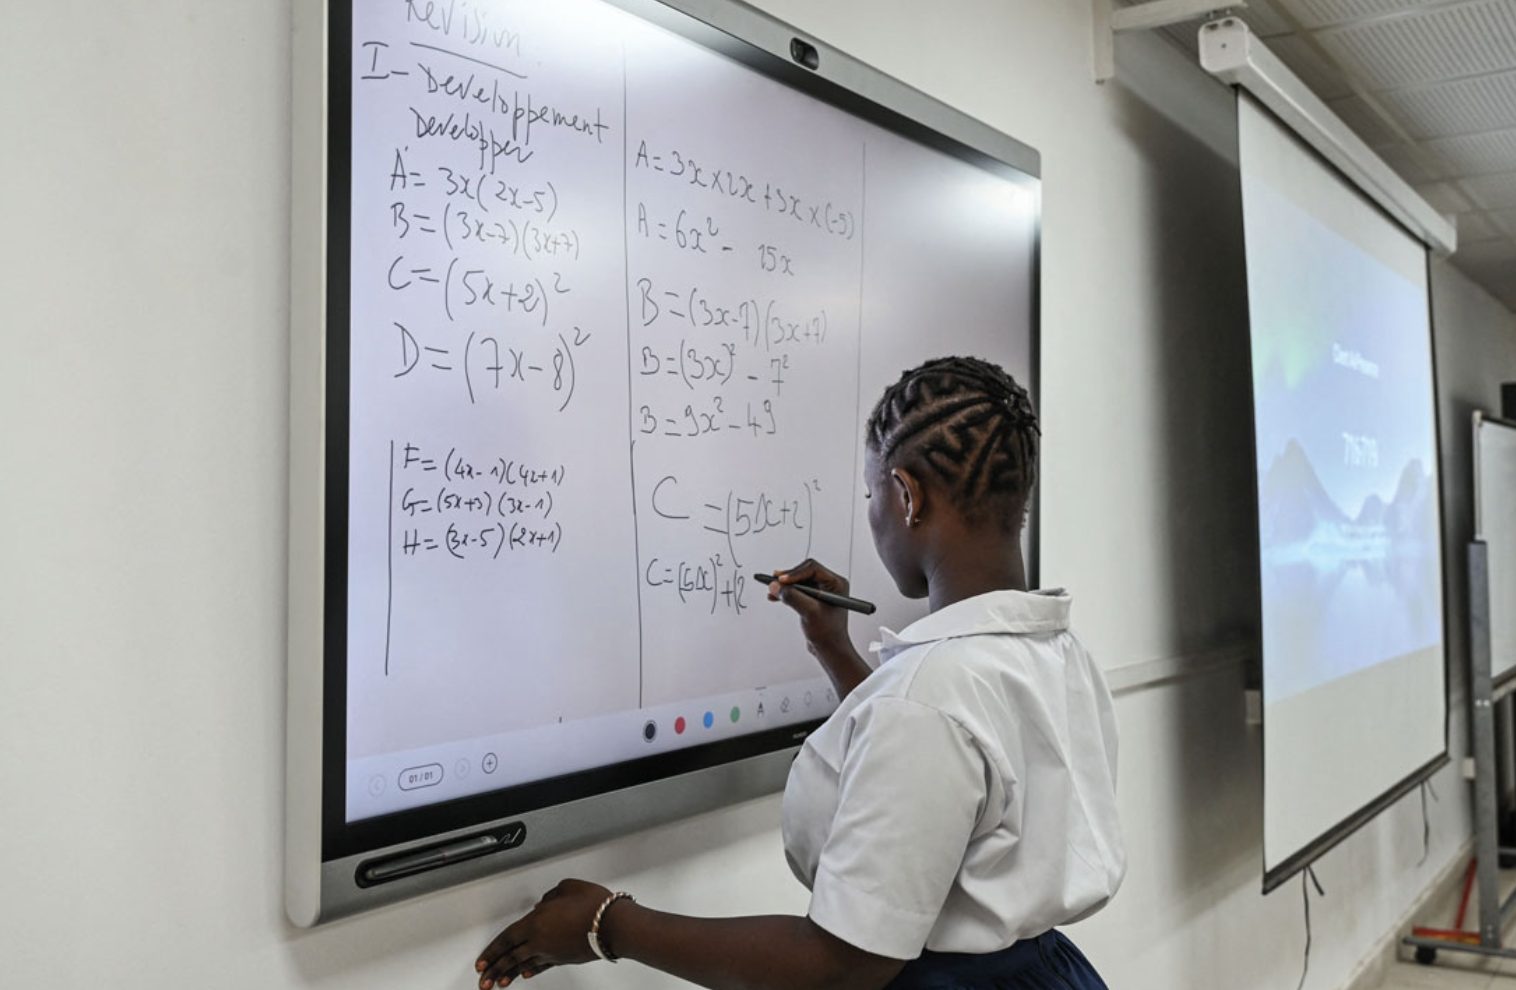 Revision
I- Developpement
Developper
A = 3x(2x-5)
B = (3x-7)(3x+7)
C = (5x+2)²
D = (7x-8)²
F = (4x-1)(4x+1)
G = (5x+3)(3x-1)
H = (3x-5)(2x+1)
A = 3x×2x+3x×(-5)
A = 6x² - 15x
B = (3x-7)(3x+7)
B = (3x)² - 7²
B = 9x² - 49
C = (5x+2)²
C = (5x)² + (2
01/01